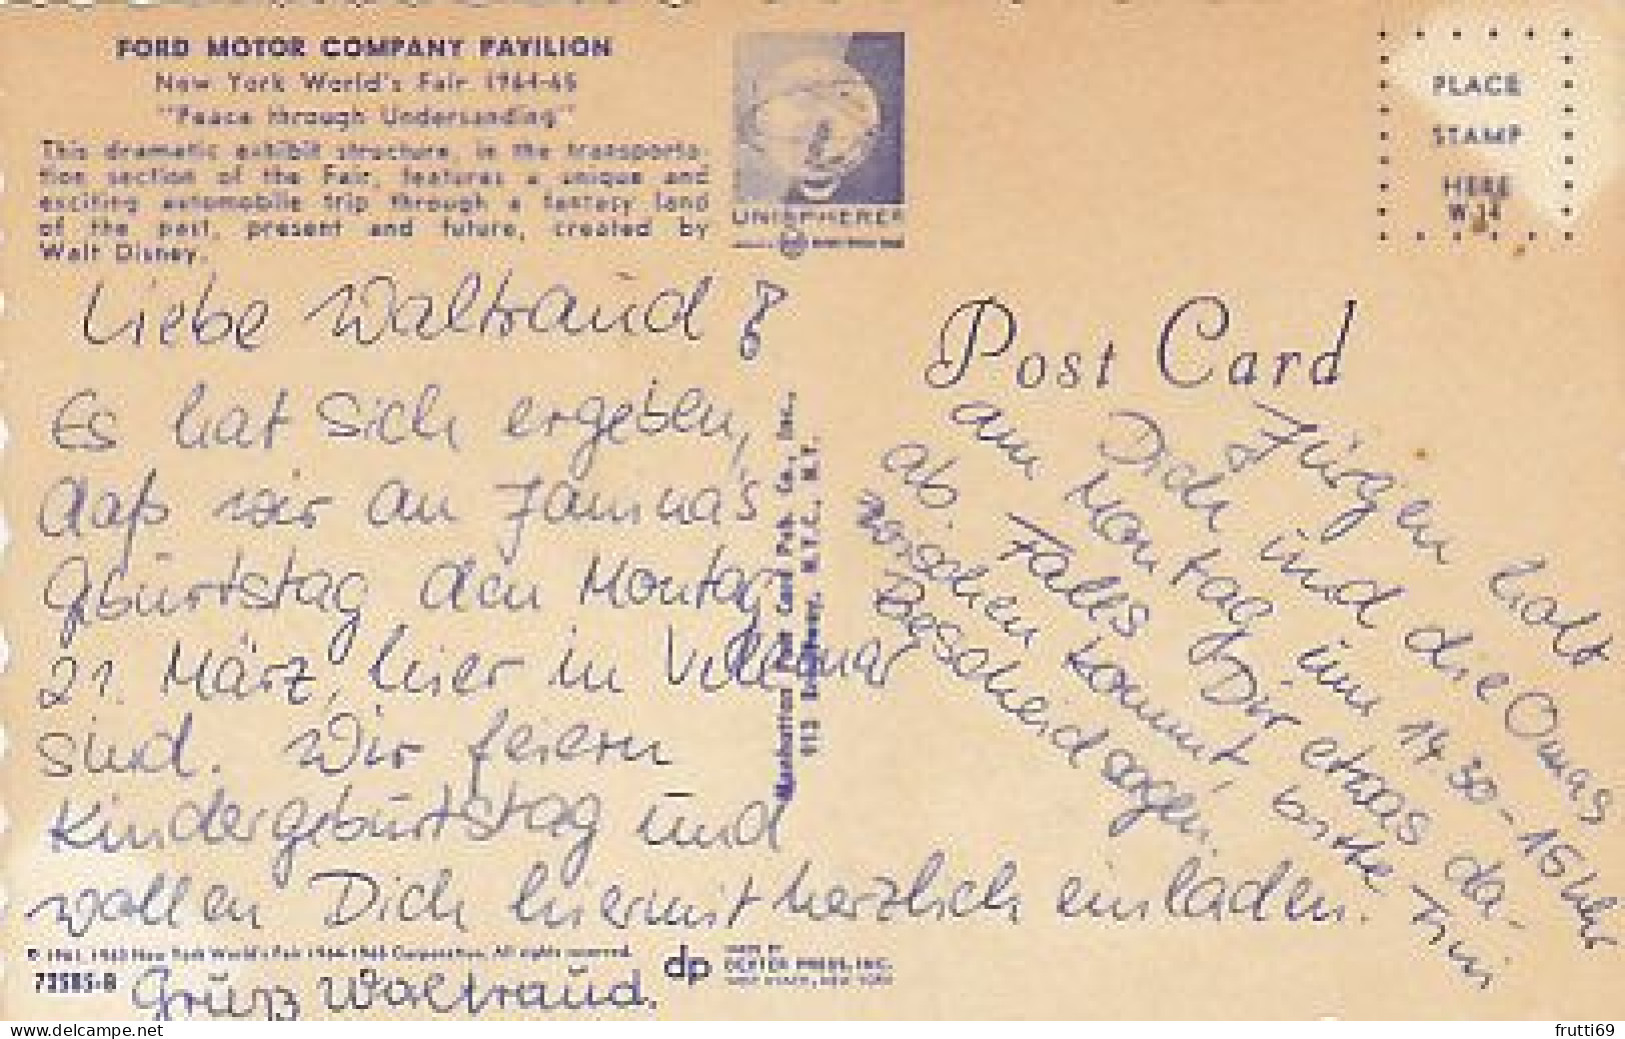 FORD MOTOR COMPANY PAVILION
New York World's Fair 1964-65
"Peace through Undersanding"
This dramatic exhibit structure, in the transporta-
tion section of the Fair, features a unique and
exciting automobile trip through a fantasy land
of the past, present and future, created by
Walt Disney.
UNISPHERE
PLACE
STAMP
HERE
W 14
Post Card
Liebe Waltraud!
Es hat sich ergeben,
daß wir an Janina's
Geburtstag den Montag
21. März, hier in Villmar
sind. Wir feiern
Kindergeburtstag und
wollen Dich hiermit herzlich einladen.
Gruß Waltraud.
Jürgen holt
Dich und die Omas
am Montag um 14 30 - 15 Uhr
ab. Falls Dir etwas da-
zwischen kommt, bitte
Bescheid sagen.
Manhattan Post Card Pub. Co., Inc.,
913 Broadway, N.Y.C., N.Y.
© 1961, 1963 New York World's Fair 1964-1965 Corporation. All rights reserved.
72585-B
dp
MADE BY
DEXTER PRESS, INC.
WEST NYACK, NEW YORK
delcampe.net
frutti69